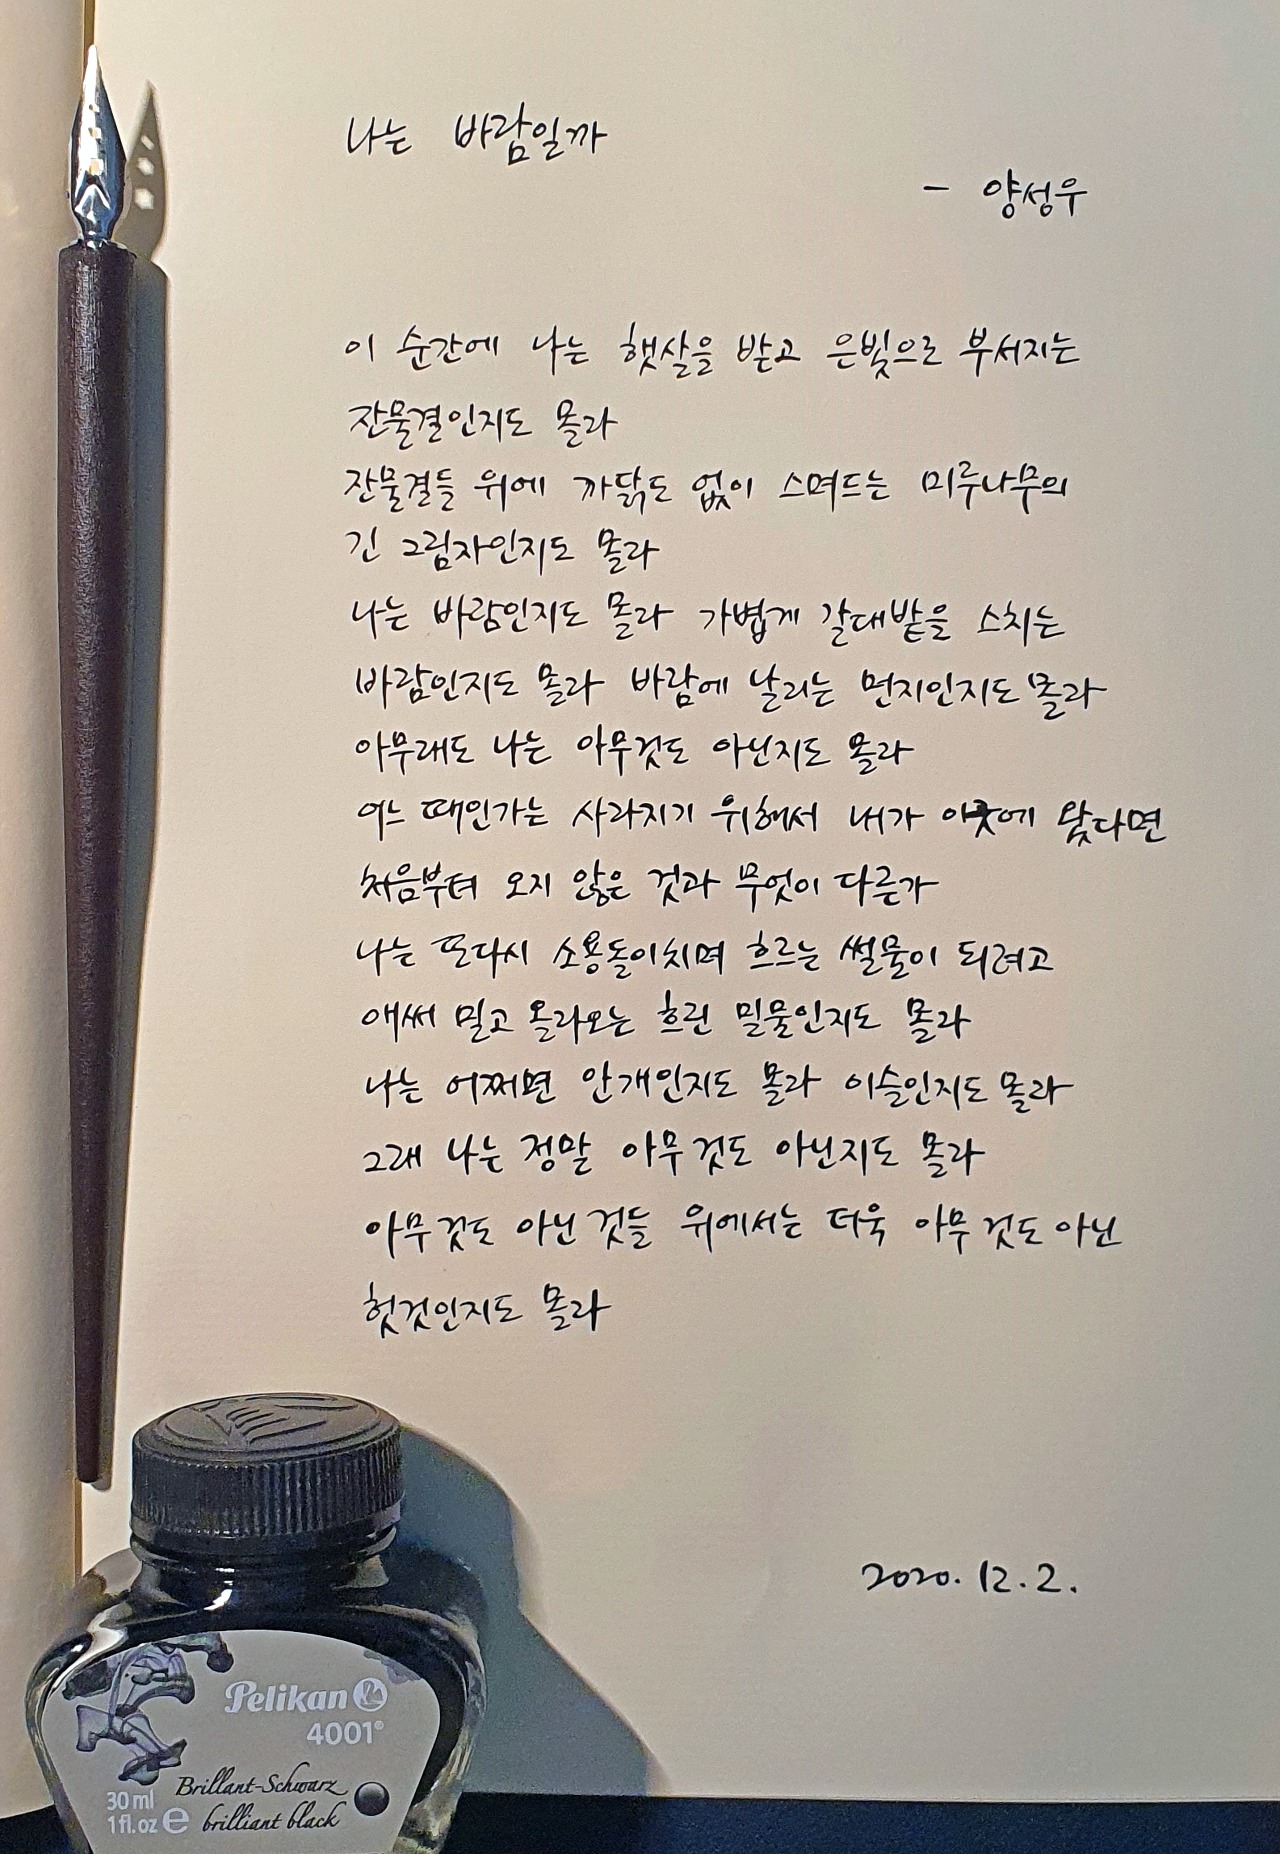 나는 바람일까
- 양성우
이 순간에 나는 햇살을 받고 은빛으로 부서지는
잔물결인지도 몰라
잔물결들 위에 까닭도 없이 스며드는 미루나무의
긴 그림자인지도 몰라
나는 바람인지도 몰라 가볍게 갈대밭을 스치는
바람인지도 몰라 바람에 날리는 먼지인지도 몰라
아무래도 나는 아무것도 아닌지도 몰라
어느 때인가는 사라지기 위해서 내가 이곳에 왔다면
처음부터 오지 않은 것과 무엇이 다른가
나는 또다시 소용돌이치며 흐르는 썰물이 되려고
애써 밀고 올라오는 흐린 밀물인지도 몰라
나는 어쩌면 안개인지도 몰라 이슬인지도 몰라
그래 나는 정말 아무것도 아닌지도 몰라
아무것도 아닌 것들 위에서는 더욱 아무것도 아닌
헛것인지도 몰라
2020. 12. 2.
Pelikan
4001®
Brillant-Schwarz
brilliant black
30 ml
1 fl. oz e